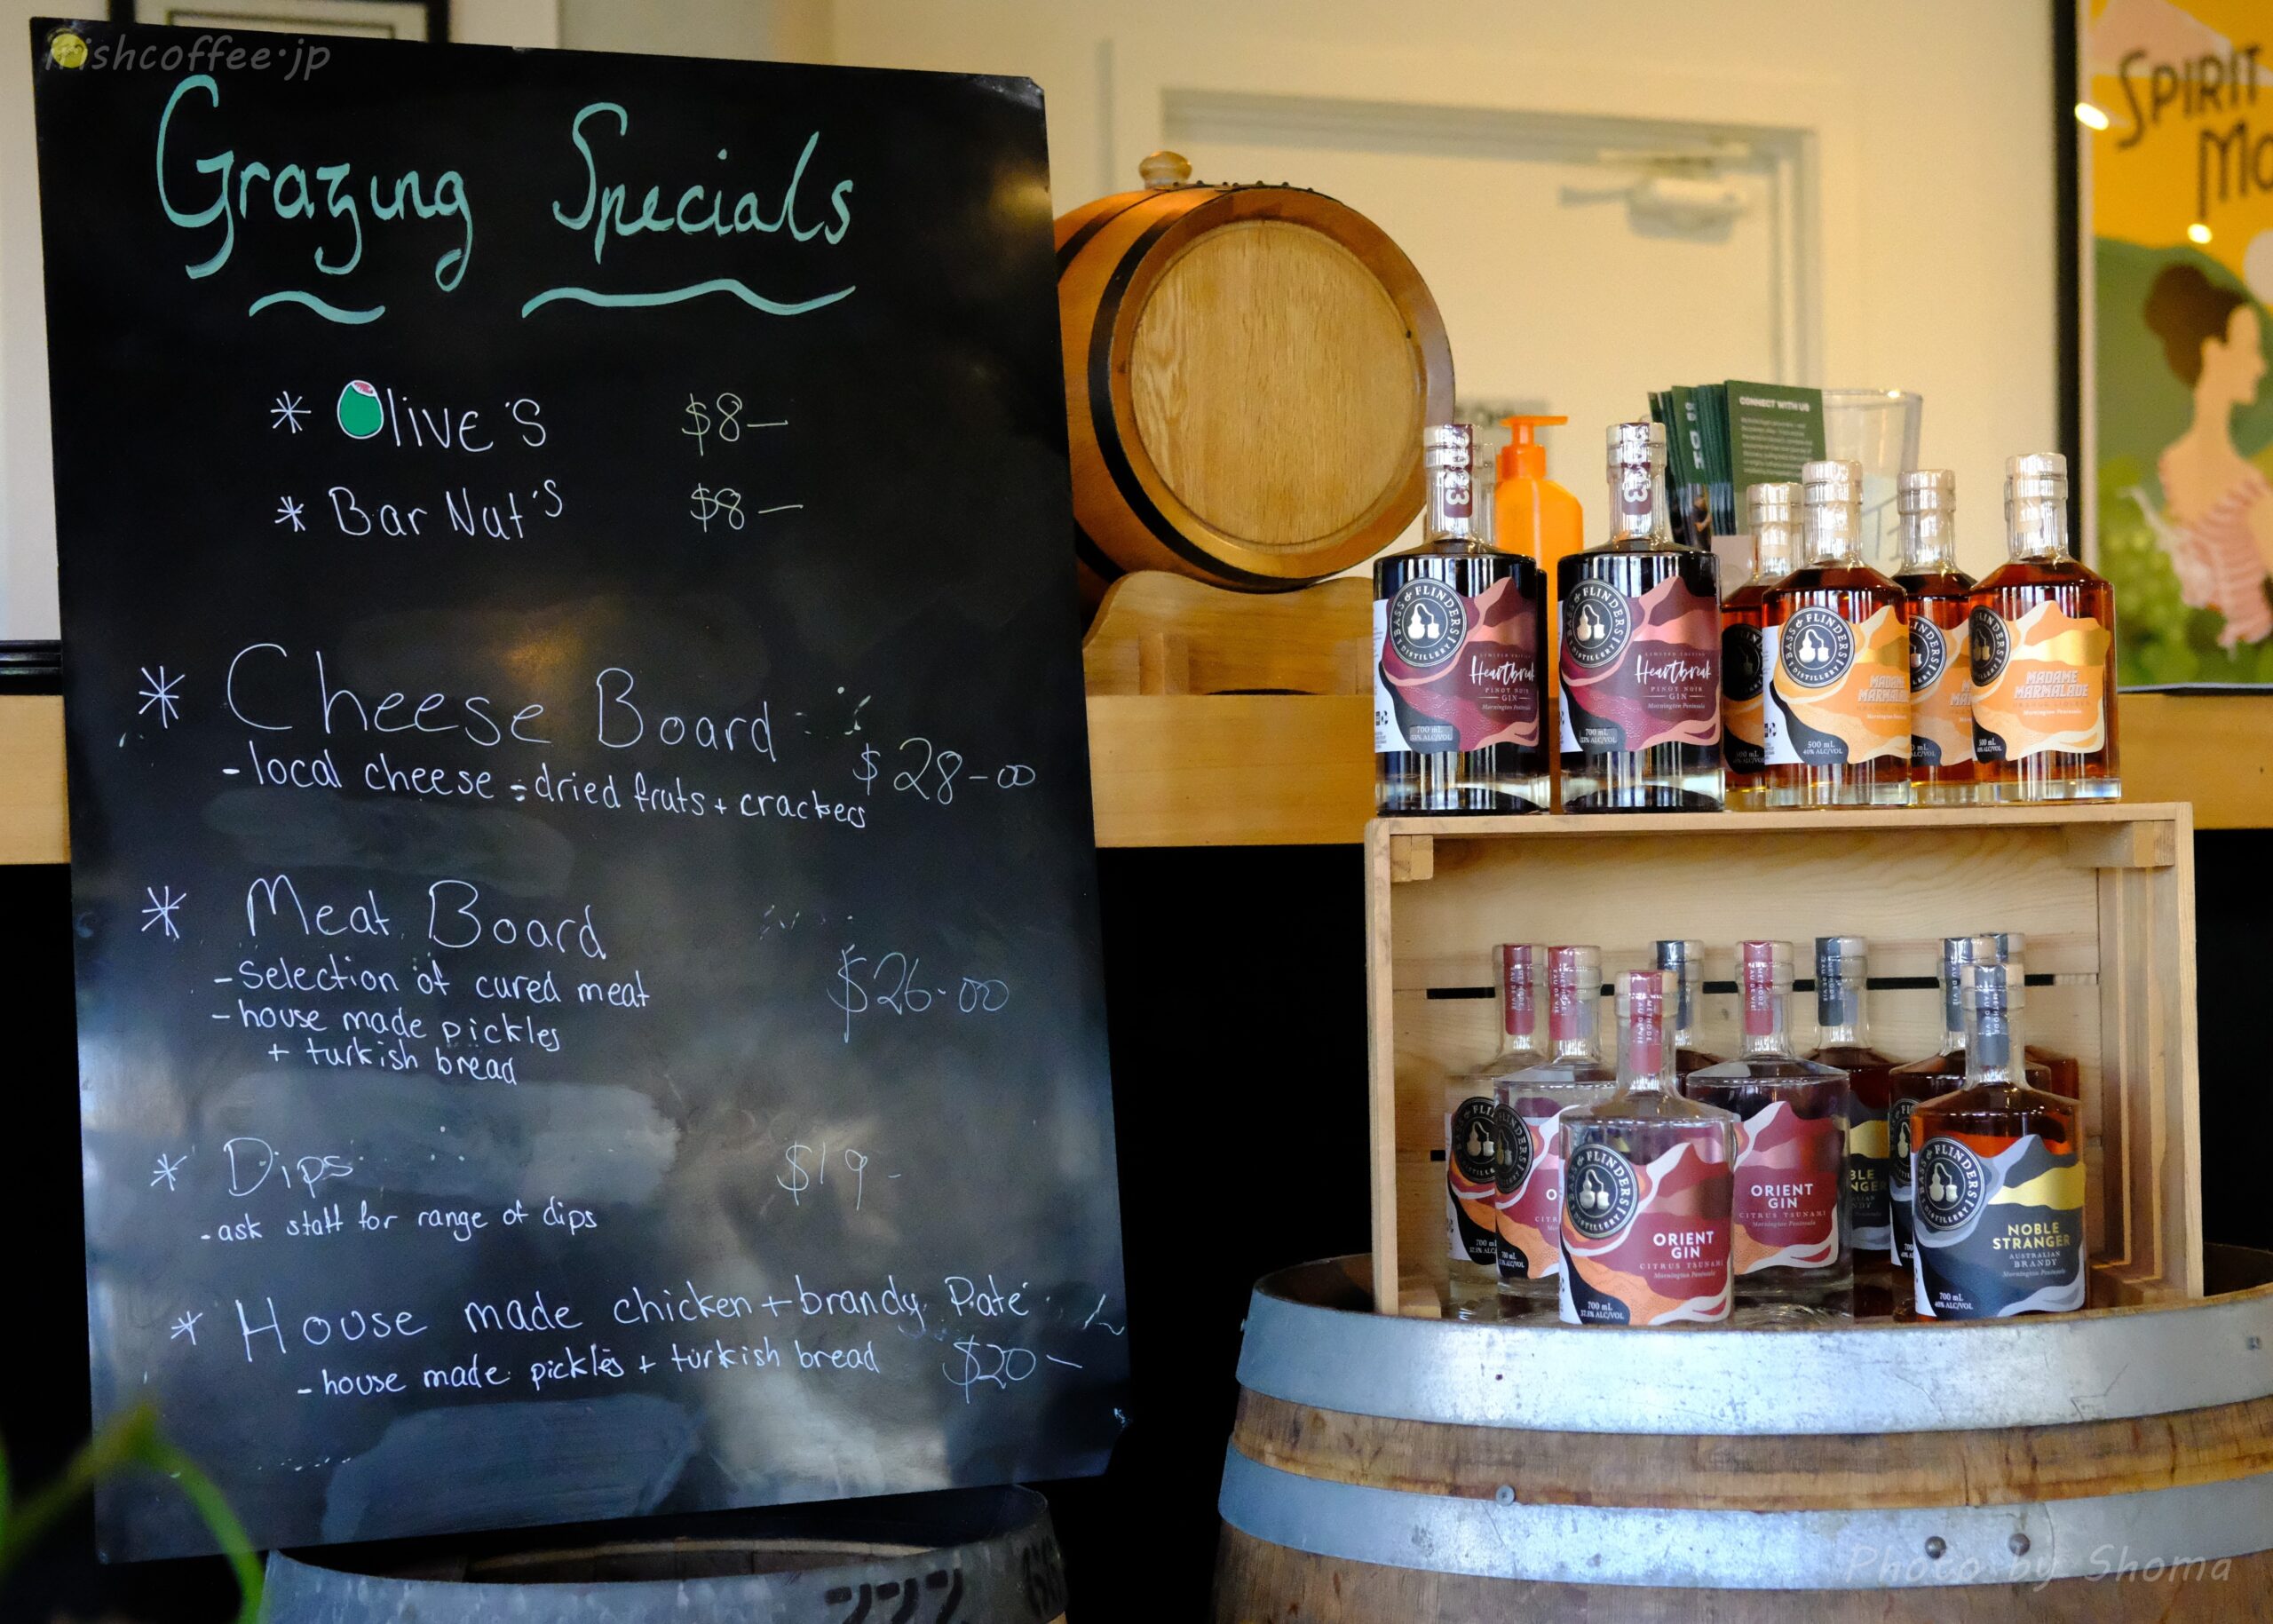 irishcoffee.jp
Grazing Specials
* Olive's $8—
* Bar Nut's $8—
* Cheese Board
- local cheese - dried fruts + crackers $28-00
* Meat Board
- Selection of cured meat $26.00
- house made pickles
+ turkish bread
* Dips $19-
- ask staff for range of dips
* House made chicken + brandy Pate
- house made pickles + turkish bread $20—
SPIRIT
CONNECT WITH US
2023
BASS & FLINDERS
DISTILLERY
LIMITED EDITION
Heartbreak
PINOT NOIR
GIN
Mornington Peninsula
700 mL
BASS & FLINDERS
DISTILLERY
LIMITED EDITION
Heartbreak
PINOT NOIR
GIN
Mornington Peninsula
700 mL
BASS & FLINDERS
DISTILLERY
MADAME
MARMALADE
500 mL
MADAME
MARMALADE
Mornington Peninsula
500 mL
BASS & FLINDERS
DISTILLERY
ORIENT
GIN
CITRUS TSUNAMI
Mornington Peninsula
700 mL
37.5% ALC/VOL
ORIENT
GIN
CITRUS TSUNAMI
Mornington Peninsula
BASS & FLINDERS
DISTILLERY
NOBLE
STRANGER
AUSTRALIAN
BRANDY
Mornington Peninsula
700 mL
40% ALC/VOL
222
Photo by Shoma